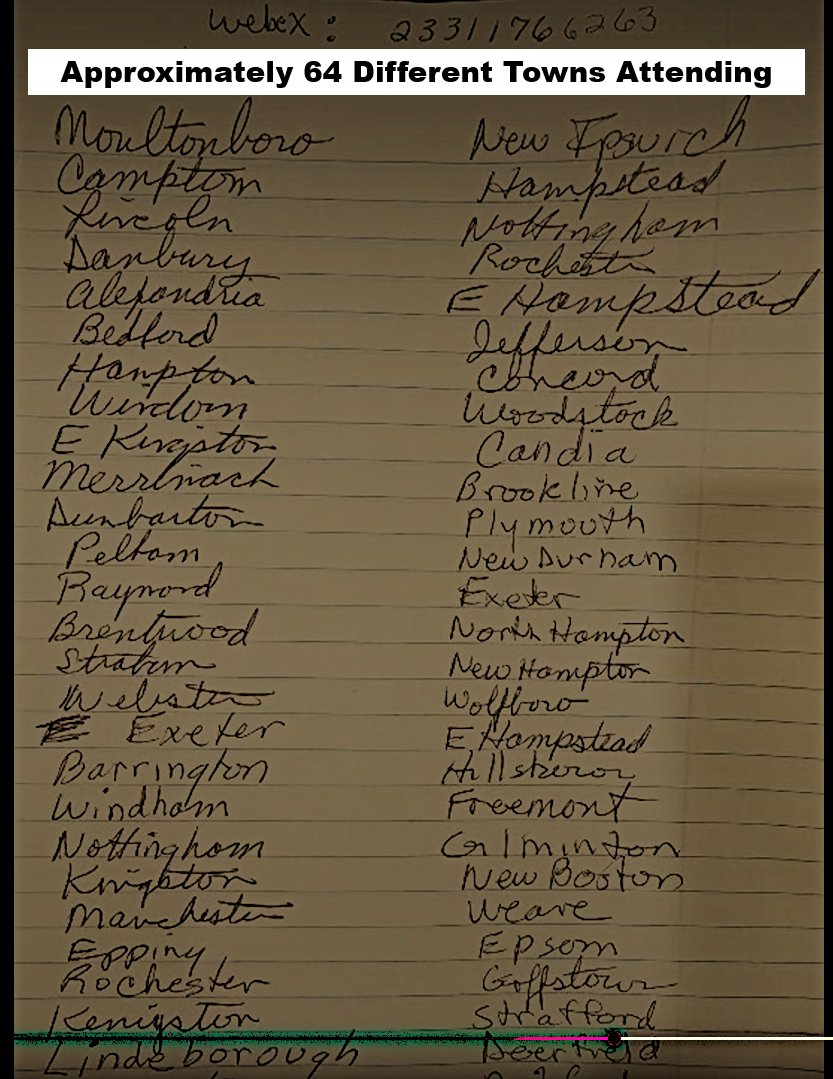 Webex: 23311766263
Approximately 64 Different Towns Attending
Moultonboro
Campton
Lincoln
Danbury
Alexandria
Bedford
Hampton
Windom
E Kingston
Merrimack
Dunbarton
Pelham
Raymond
Brentwood
Stratham
Webster
E Exeter
Barrington
Windham
Nottingham
Kingston
Manchester
Epping
Rochester
Kenigston
Lindeborough
New Ipswich
Hampstead
Nottingham
Rochester
E Hampstead
Jefferson
Concord
Woodstock
Candia
Brookline
Plymouth
New Durham
Exeter
North Hampton
New Hampton
Wolfboro
E Hampstead
Freemont
Gilminton
New Boston
Weare
Epsom
Goffstown
Strafford
Deerfield